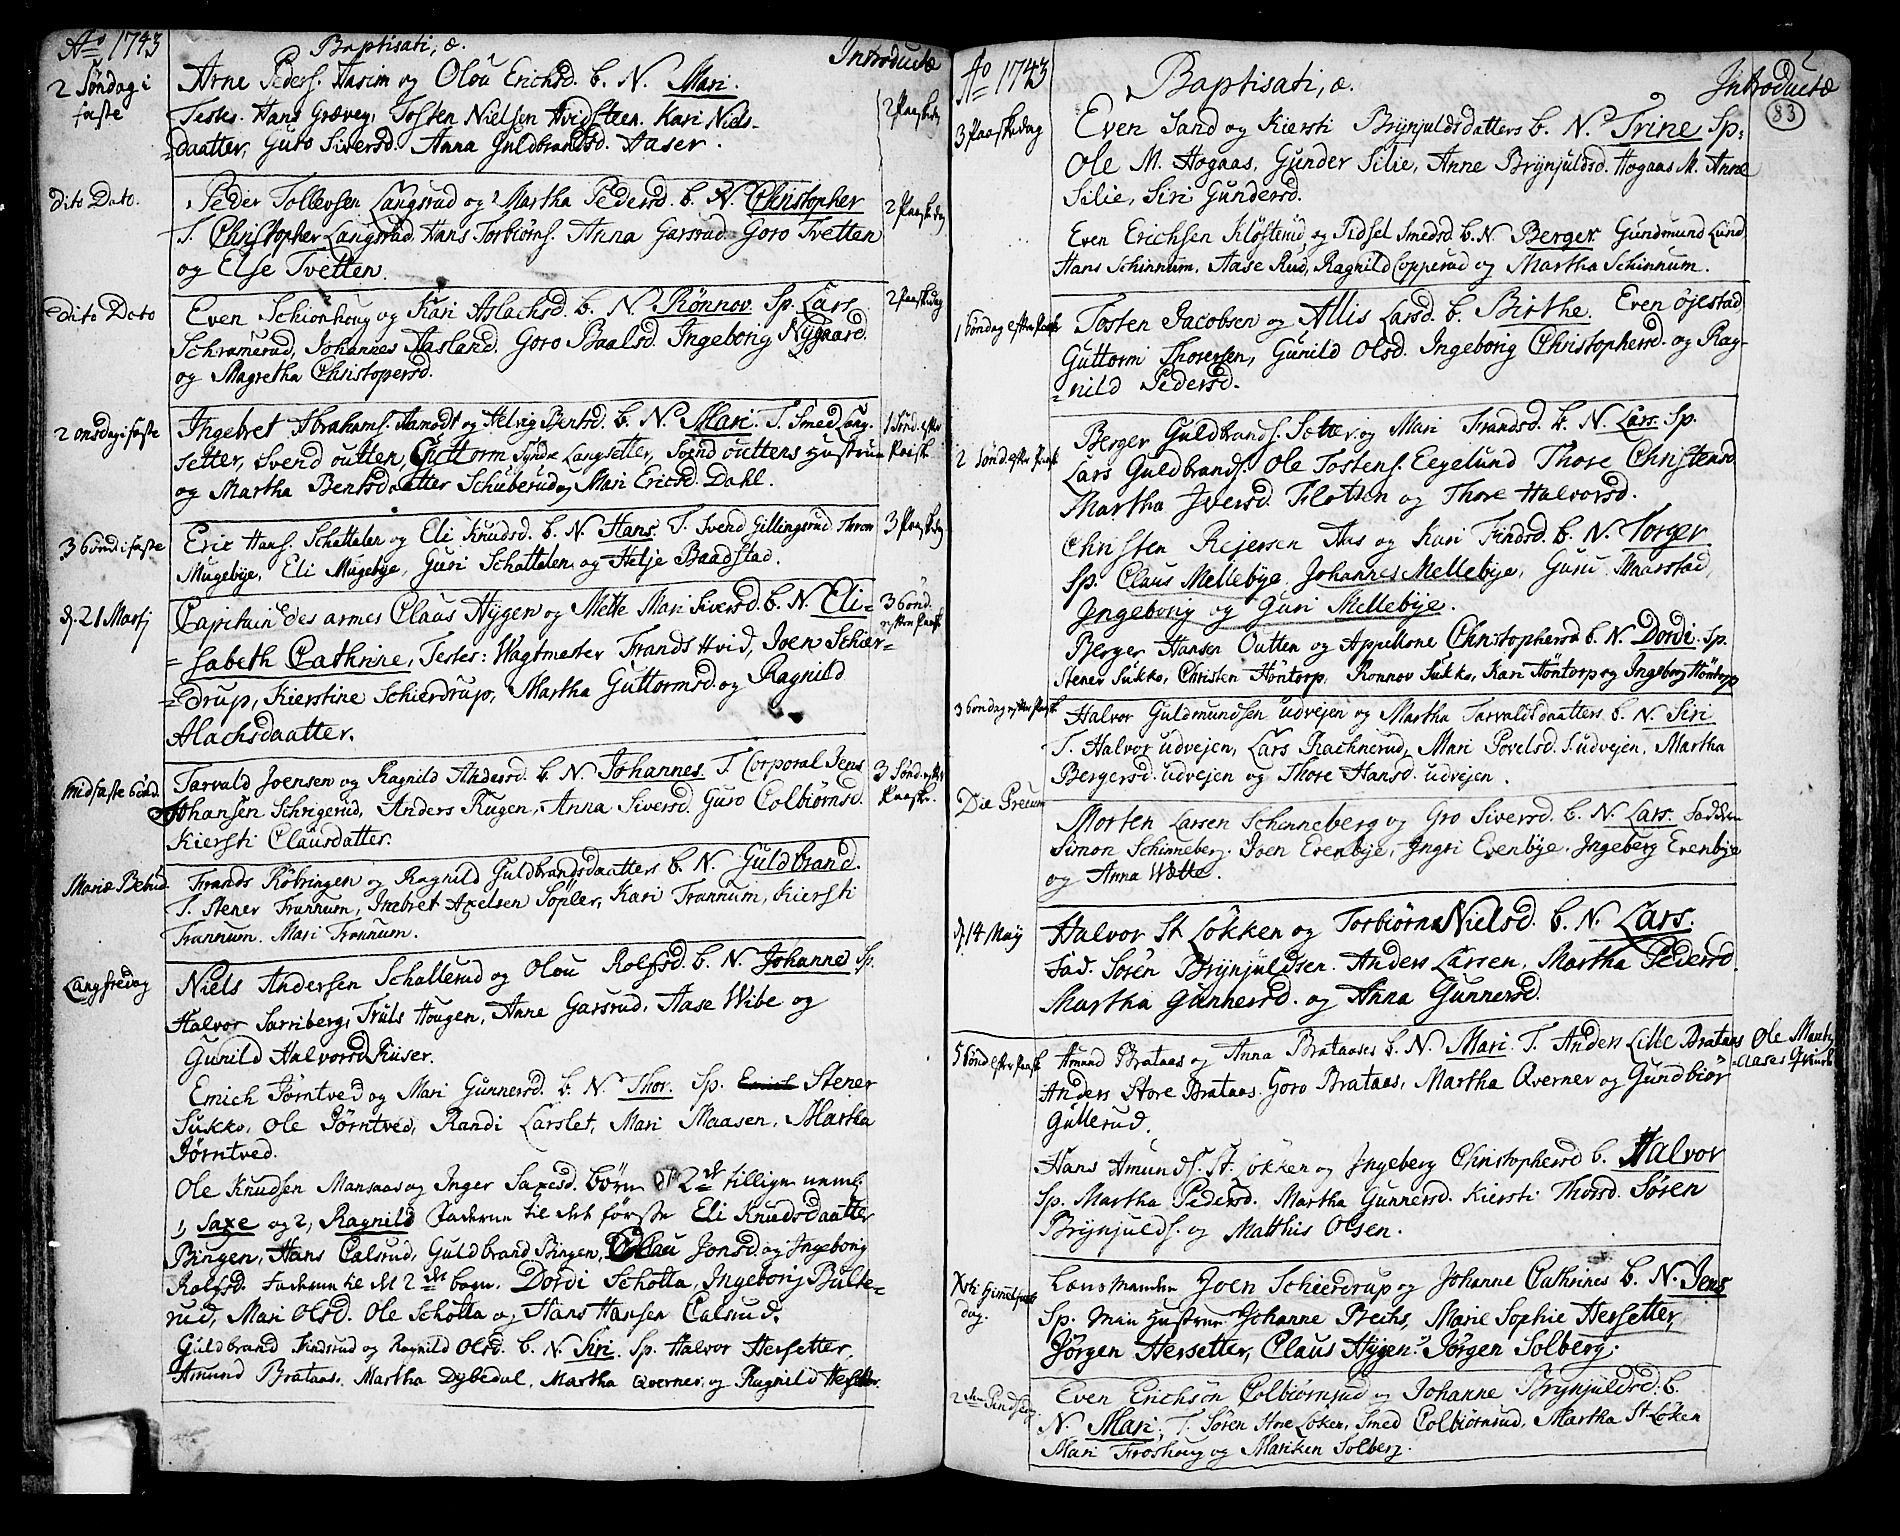 Aº 1743 Baptisati, æ. Introductæ
2 Søndag i faste
Arne Peders. Aasim og Olou Erichsd. b. N. Mari.
Testes. Hans Grævey, Tosten Nielsen Hvidsteen. Kari Niels-
=daatter, Guro Siversd. Anna Guldbrandsd. Aaser.
2 Paaskedag
dito Dato.
Peder Tollevsen Langsrud og Martha Pedersd. b. N. Christopher
T. Christopher Langsrud, Hans Torbiørns. Anna Garsrud Goro Tvetten
og Else Tvetten.
2 Paaskedag
dito Dato
Even Schionhoug og Kari Aslachsd. b. N. Rønnov. Sp. Lars
Schramerud, Johannes Aasland. Goro Baalsd. Ingeborg Nygaard.
og Magretha Christopersd.
2 Paaskedag
2 onsdag i faste
Ingebret Abrahams. Aamodt og Helvig Bentsd. b. N. Mari. T. Smed Lang-
setter, Svend outten, Guttorm Syndre Langsetter, Svend outtens Hustrue
og Martha Bentsdaatter Schuberud og Mari Ericsd. Dahl.
1 Sønd. efter Paask
3 Sønd i faste
Eric Hans. Schattelen og Eli Knudsd. b. N. Hans. T. Svend Gillingsrud Thron
Mugebye, Eli Mugebye, Guri Schattelen og Helje Baadstad.
3 Paaskedag
d. 21 Martj
Capitain des armes Claus Hygen og Mette Mari Siversd. b. N. Eli-
=sabeth Cathrine, Testes: Wagtmester Frands Hvid, Joen Schier-
=drup, Kierstine Schierdrup, Martha Guttormsd. og Ragnild
Alachsdaatter.
3 Sønd. efter Paask
Midfaste Sønd.
Tarvald Joensen og Ragnild Andersd. b. N. Johannes. T. Corporal Jens
Johansen Schrigerud, Anders Rugen, Anna Siversd. Guro Colbiørnsd.
Kiersti Clausdatter.
3 Sønd. efter Paaske.
Mariæ Bebud.
Frands Røbringen og Ragnild Guldbrandsdaatters b. N. Guldbrand.
T. Stener Frannum, Inebret Axelsen Søpler, Kari Trannum, Kiersti
Frannum. Mari Frannum.
Langfredag
Niels Andersen Schallerud og Olou Rolfsd. b. N. Johanne Sp.
Halvor Sarriberg, Truls Hougen, Anne Garsrud, Aase Wibe og
Gunild Halvorsd Riiser.
Emich Jørntved og Mari Gunnersd. b. N. Thor. Sp. Stener
Sukko, Ole Jørntved, Randi Larslet, Mari Maasen, Martha
Jørntved.
Ole Knudsen Mansaas og Inger Saxesd. børn 2de tilligne neml:
1, Saxe og 2, Ragnild Faderne til det første Eli Knudsdaatter
Bingen, Hans Calsrud, Guldbrand Bingen, Olou Jonsd. og Ingeborg
Rolfsd. Faderne til det 2det barn. Dordi Schotta, Ingeborg Bulke-
rud, Mari Olsd. Ole Schotta og Hans Hansen Calsrud.
Guldbrand Findsrud og Ragnild Olsd. b. N. Siri. Sp. Halvor Hersetter,
Amund Brataas. Martha Dybedal, Martha Qverner, og Ragnild Hersetter.
Aº 1743 Baptisati, æ. Introductæ
83
3 Paaskedag
Even Sand og Kiersti Brynjuldsdatters b. N. Trine Sp:
Ole M. Hogaas, Gunder Silie, Anne Brynjuldsd. Hogaas M. Anne
Silie, Siri Gundersd.
Even Erichsen Kløfterud og Sidsel Smedsd. b. N Berger. Gundmund Lund
Hans Schinnum, Aase Rud, Ragnild Copperud og Martha Schinnum.
1 Søndag efter Paask
Tosten Jacobsen og Allis Larsd. b. Birthe. Even Øjestad
Guttorm Thoresen, Gunild Olsd. Ingeborg Christophersd. og Rag-
=nild Pedersd.
2 Sønd. efter Paask
Berger Guldbrands. Sotter og Mari Frandsd. b. N. Lars. Sp.
Lars Guldbrands. Ole Tostens. Eegelund Thore Christensd
Martha Iversd. Floten og Thore Halvorsd.
Christen Rejersen Aas og Kari Findsd. b. N. Torger
Sp. Claus Mellebye, Johannes Mellebye, Guru Maarstad,
Ingeborg og Guri Mellebye.
Berger Hansen Outten og Appellone Christophersd b. N. Dordi. Sp.
Stener Sukko, Christen Høntorp, Rønnov Sukko, Kari Høntorp og Ingeborg Høntorp
3 Søndag efter Paask.
Halvor Guldmundsen udvejen og Martha Tarvaldsdaatters b. N. Siri
T. Halvor udvejen, Lars Rachnerud, Mari Povelsd. S. udvejen, Martha
Bergersd. udvejen og Thore Hansd. udvejen.
Die Precum
Morten Larsen Schinneberg og Gro Siversd. b. N. Lars. Fadderne
Simon Schinneberg. Joen Evenbye, Ingri Evenbye. Ingeberg Evenbye
og Anna Wætte.
d. 14 May
Halvor St. Løkken og Torbiørn Nielsd. b. N. Lars.
Fad. Søren Brynjuldsen. Anders Larsen, Martha Pedersd.
Martha Gunnersd. og Anna Gunnersd.
5 Sønd efter Paask
Amund Brataas og Anna Brataases b. N. Mari. T. Anders Lille Brataas Ole
Anders Store Brataas. Goro Brataas, Martha Qverner og Gundbiør
Gullerud.
Hans Amunds. St. Løkken og Ingeberg Christophersd b. Halvor
Sp. Martha Pedersd. Martha Gunnersd. Kiersti Thorsd. Søren
Brynjulds. og Matthis Olsen.
Xsti Himelfarts dag.
Lansmanden Joen Schierdrup og Johanne Cathrines b. N. Jens
Sp. Min Hustrue Johanne Brechs, Marie Sophie Hersetter,
Jørgen Hersetter, Claus Hygen. Jørgen Solberg.
2den Pindsedag
Even Erichsøn Colbiørnsrud og Johanne Brynjuldsd. b.
N. Mari, T. Søren Store Løken, Smed Colbiørnrud, Martha St. Løken
Mari Froshoug og Mariken Solberg.